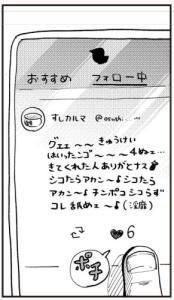 おすすめ フォロー中
すしカルマ @osushi.....
グエェ〜〜きゅうけい
はいったンゴ〜〜〜4めェ…
きてくれた人ありがとナス
シコたらアカン〜♪シコたら
アカン〜♪チンポコシコらず
コレ舐めェ〜♪(淫靡)
6
ポチ